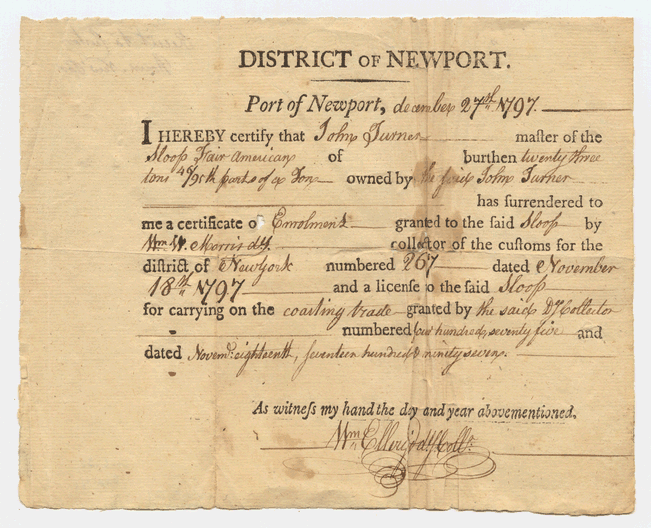 DISTRICT OF NEWPORT.
Port of Newport, december 27th 1797.
I HEREBY certify that John Turner master of the
Sloop Fair American of burthen twenty three
tons 49/95th parts of a Ton owned by the said John Turner
has surrendered to
me a certificate of Enrolment granted to the said Sloop by
Wm W. Morris dy. collector of the customs for the
district of Newyork numbered 267 dated November
18th 1797 and a license to the said Sloop
for carrying on the coasting trade granted by the said Dy Collector
numbered four hundred, seventy five and
dated Novemr. eighteenth, seventeen hundred & ninety seven.
As witness my hand the day and year abovementioned,
Wm Ellery Collr.